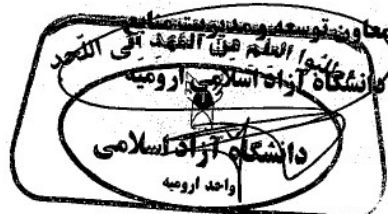 معاون توسعه و مدیریت منابع
اطلبوا العلم من المهد الی اللحد
دانشگاه آزاد اسلامی ارومیه
دانشگاه آزاد اسلامی
واحد ارومیه